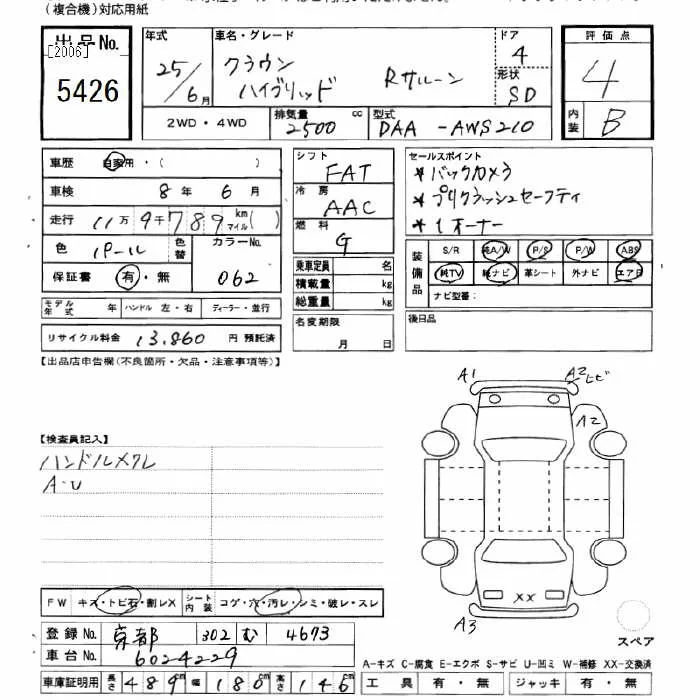 (複合機)対応用紙
出品No.
[2006]
5426
年式 25/6月
車名・グレード
クラウン
ハイブリッド Rサルーン
ドア 4
形状 SD
2WD・4WD
排気量 2500 cc
型式 DAA-AWS210
評価点
4
内装 B
車歴 自家用・( )
車検 8年 6月
走行 11万9千789 km マイル( )
色 パール 色替 カラーNo. 062
保証書 有・無
モデル年式 年 ハンドル 左・右 ディーラー・並行
リサイクル料金 13,860 円 預託済
シフト FAT
冷房 AAC
燃料 G
乗車定員 名
積載量 kg
総重量 kg
名変期限
月 日
セールスポイント
*バックカメラ
*プリクラッシュセーフティ
*1オーナー
装備品
S/R 純A/W P/S P/W ABS
純TV 純ナビ 革シート 外ナビ エアB
ナビ型番:
後日品
【出品店申告欄(不良箇所・欠品・注意事項等)】
【検査員記入】
ハンドルメクレ
A・U
A1
A2ヒビ
A2
XX
A3
スペア
FW キズ・トビ石・割レX シート内装 コゲ・穴・汚レ・シミ・破レ・スレ
登録No. 京都 302 む 4673
車台No. 6024229
車庫証明用 長さ 489cm 幅 180cm 高さ 146cm
A-キズ C-腐食 E-エクボ S-サビ U-凹ミ W-補修 XX-交換済
工具 有・無 ジャッキ 有・無